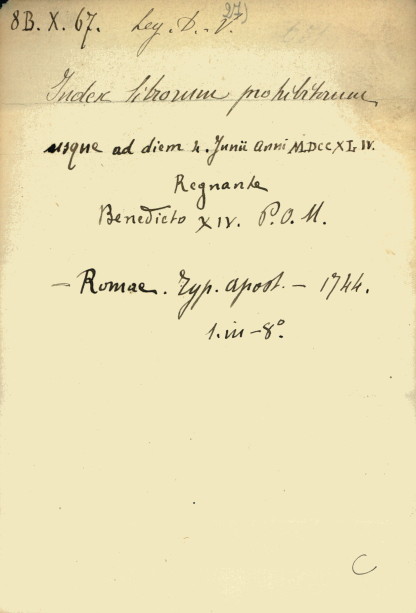 8B. X. 67. Leg. D. V. 27)
Index librorum prohibitorum
usque ad diem 4. Junii Anni MDCCXLIV.
Regnante
Benedicto XIV. P. O. M.
— Romae. Typ. apost. — 1744.
1. in — 8°.
C